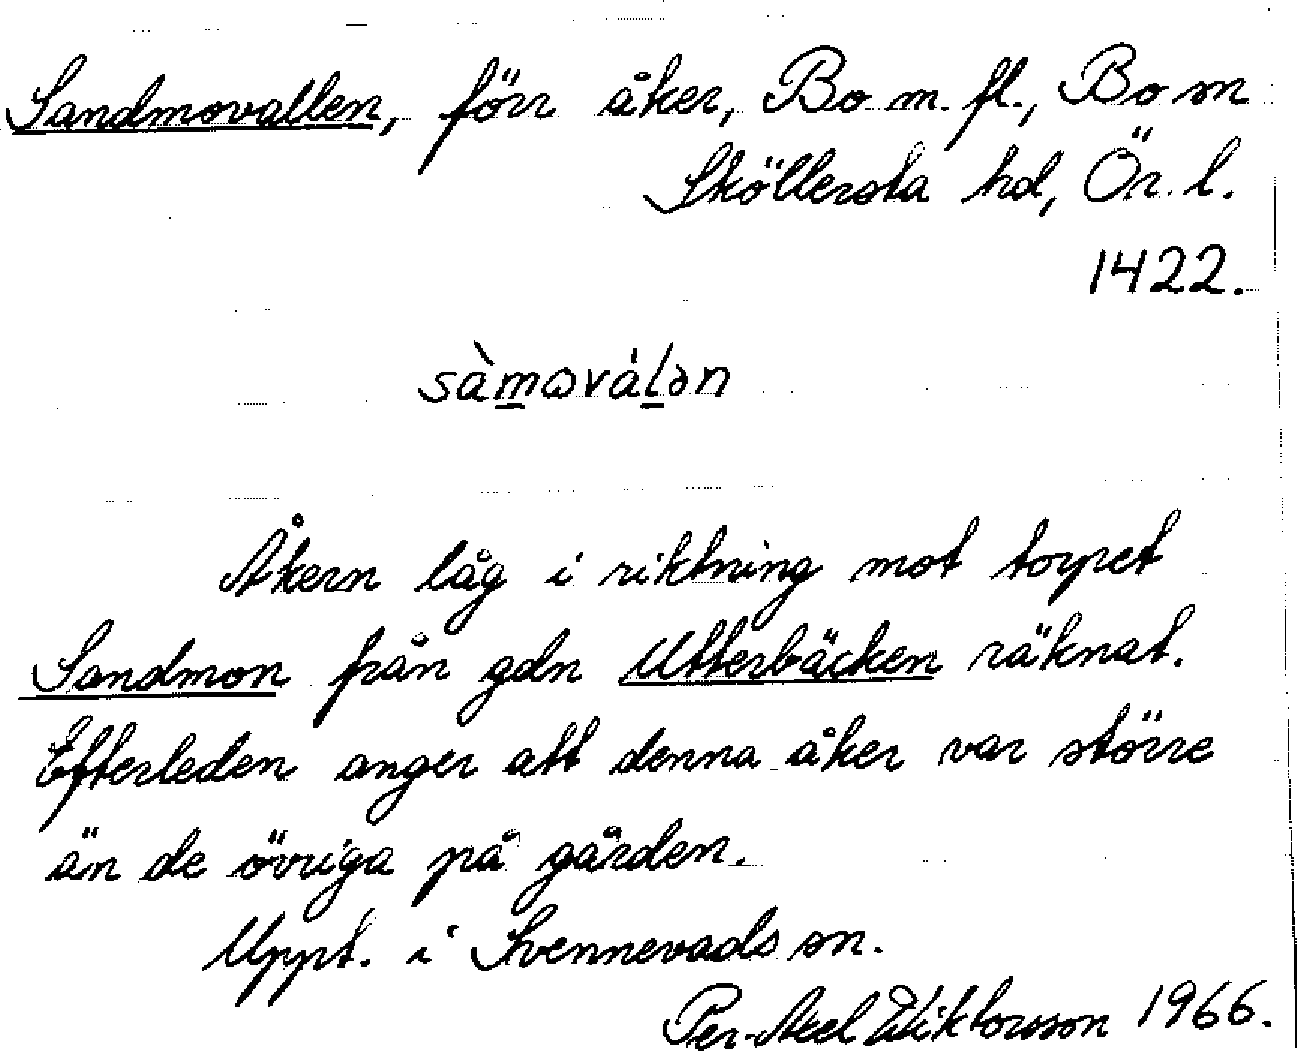 Sandmovallen, förr åker, Bo m. fl., Bo sn
Sköllersta hd, Ör. l.
1422.
sàmωvál̲ən
Åkern låg i riktning mot torpet
Sandmon från gdn Utterbäcken räknat.
Efterleden anger att denna åker var större
än de övriga på gården.
Uppt. i Svennevads sn.
Per-Axel Wiktorsson 1966.